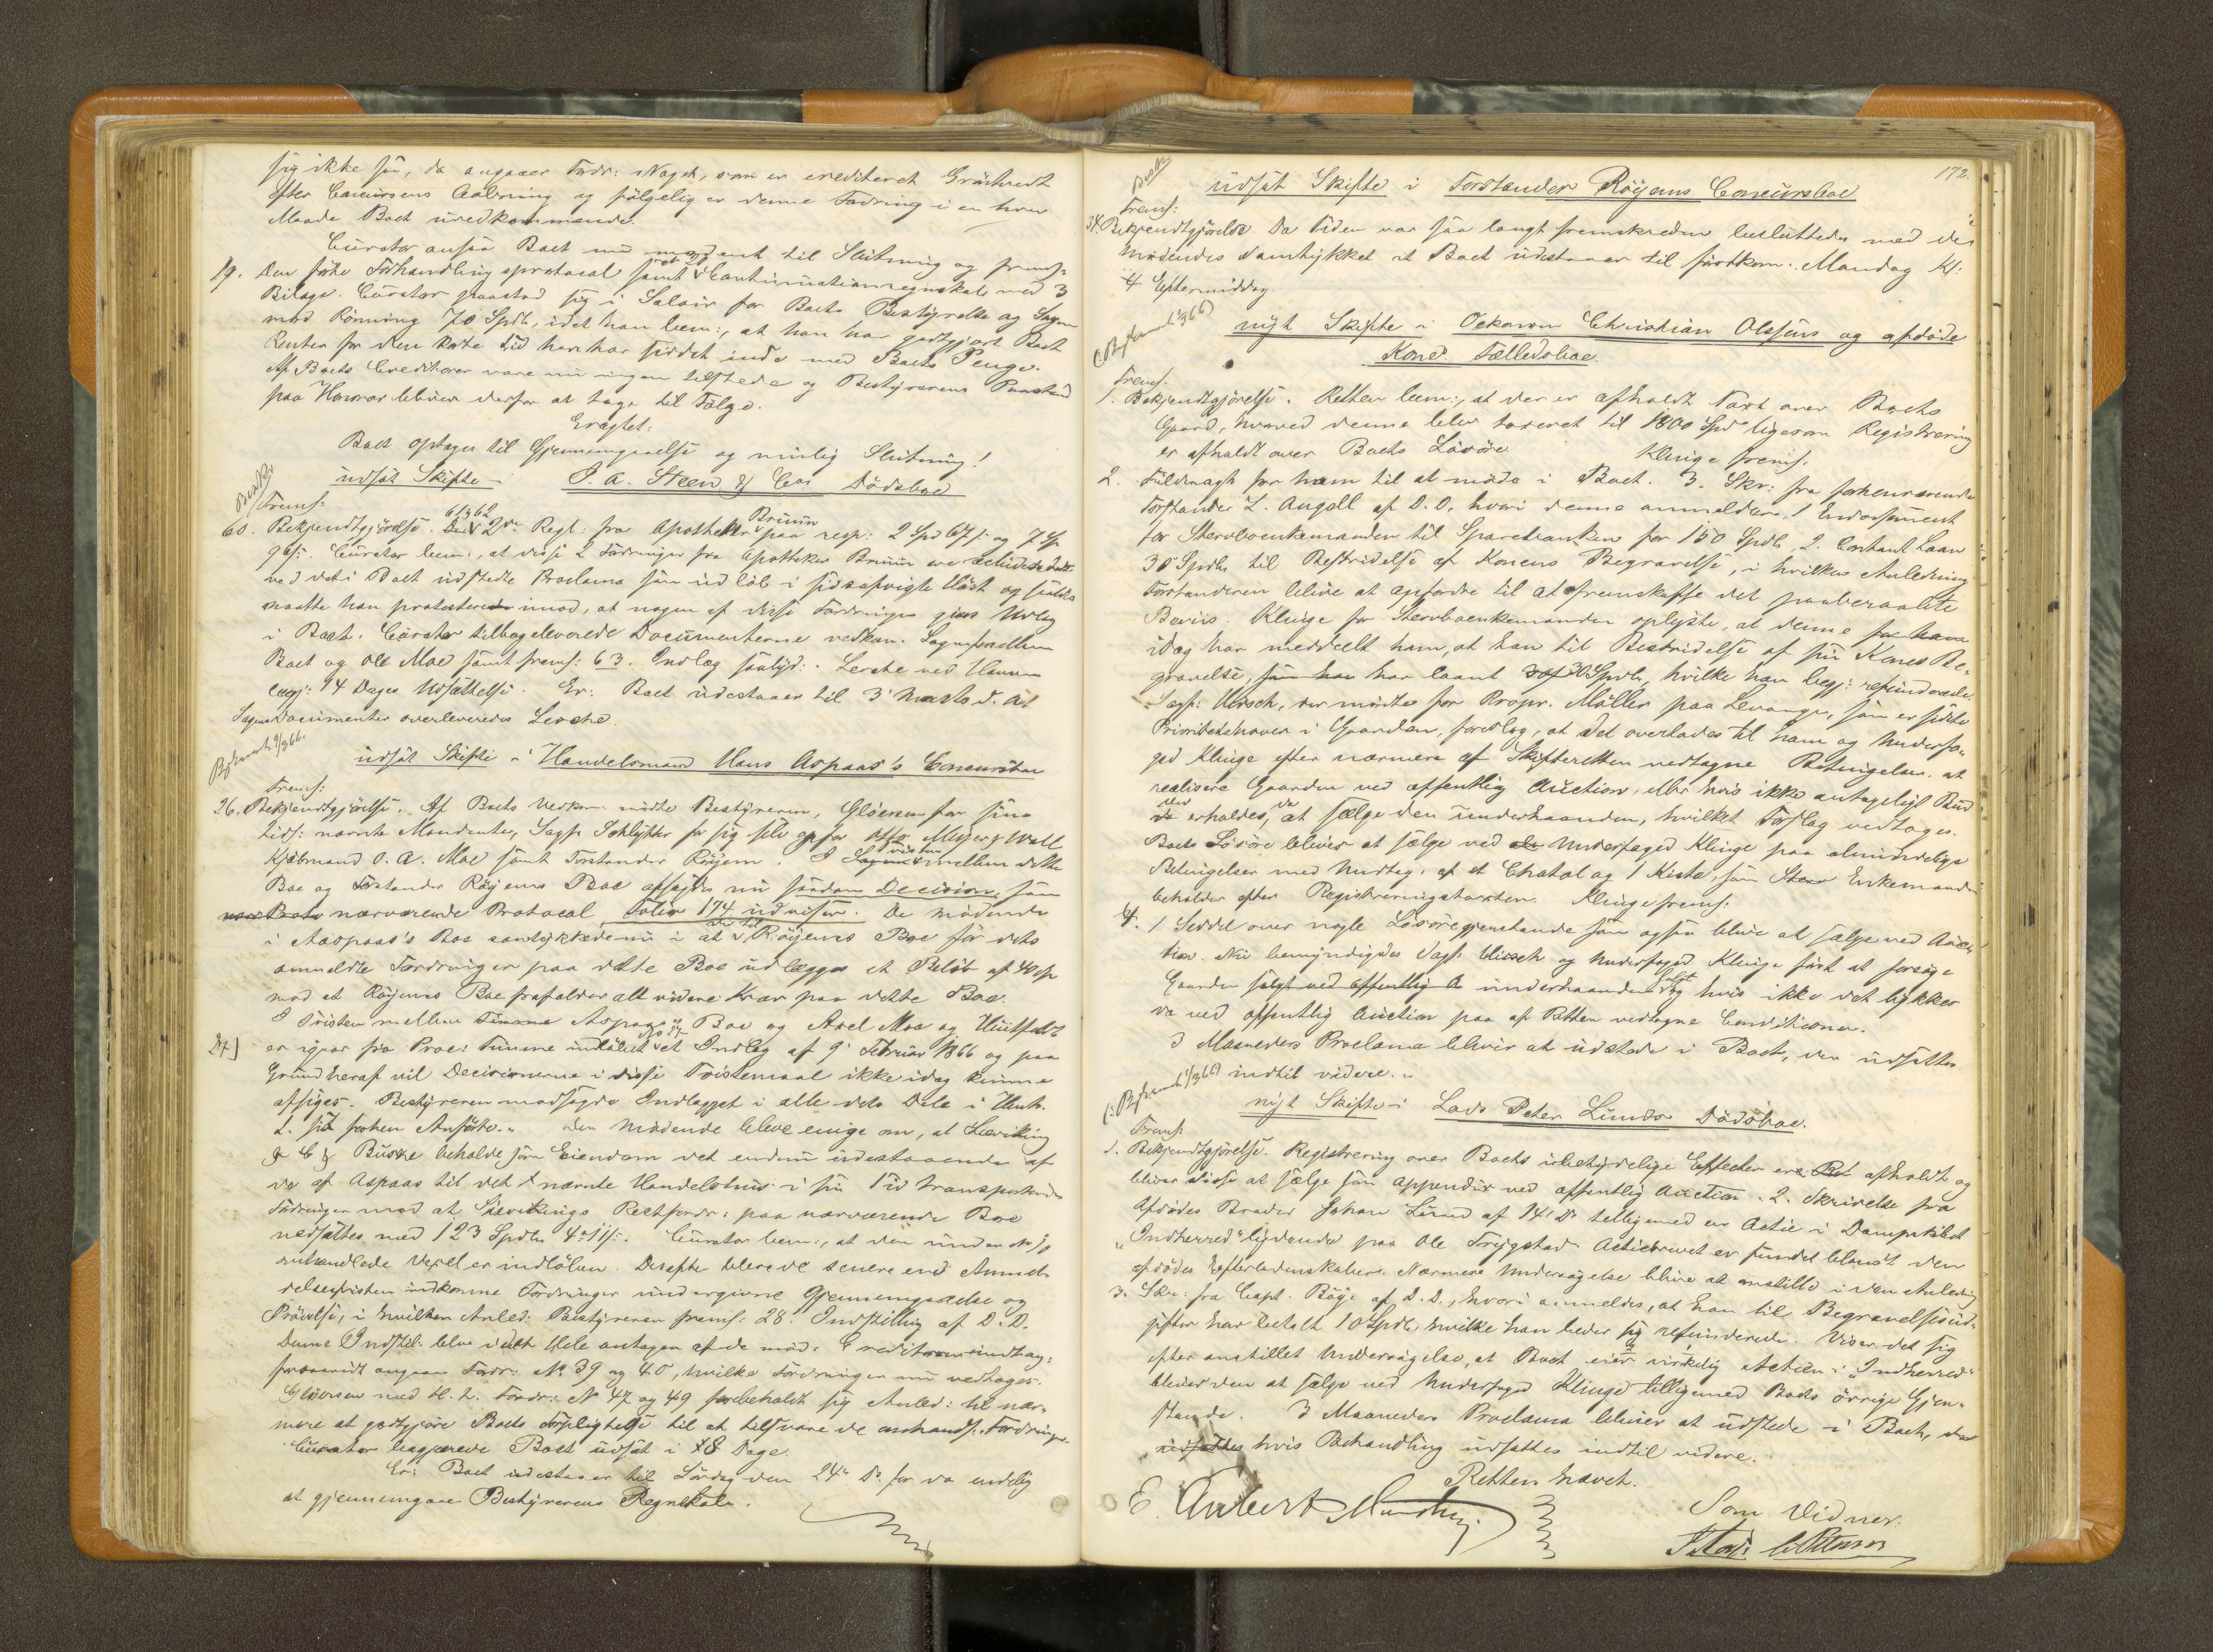 sig ikke saa, da angaaer Fordr: Noget, som er crediteret Grüntvedt
efter Concursens Aabning og følgelig er denne Fordring i en hver
Maade Boet uvedkommende.
Curator ansaa Boet nu modent til Slutning og frems:
19. Den førte Forhandlingsprotocol samt Continuationsregnskab med 3
Bilage. Curator paastod sig i Salair for Boets Bestyrelse og Sagen
mod Rönning 70 Spdlr, idet han bem:, at han har godtgjort Boet
Renter for den korte Tid han har siddet inde med Boets Penge.
Af Boets Creditorer vare nu ingen tilstede og Bestyrerens Paastand
paa Honorar bliver derfor at tage til Følge.
Eragtet:
Boet optages til Gjennemgaaelse og mulig Slutning!
Besk:
udsat Skifte i J. A. Steen & Cos Dödsboe
Frems:
60. Bekjendtgjörelse. 61 & 62 2de Regl: fra Apotheker Bruun paa resp: 2 Spd 67 s: og 7 Sp
96 s:. Curator bem:, at disse 2 Fordringer fra Apotheker Bruun ere
ved det i Boet udstedte Proclama som udløb i sidstafvigte Høst og saaledes
maatte han protestere imod, at nogen af disse Fordringer gives Udlæg
i Boet. Curator tilbageleverede Documenterne vedkom. Sagen mellem
Boet og Ole Moe samt frems: 63. Indlæg saalyd: Lerche ved Hansen
begj: 14 Dages Udsættelse. Er: Boet udestaaer til 3' Marts d. A!
Sagens Documenter overleveredes Lerche.
udsat Skifte i Handelsmand Hans Aspaas's Concursboe
Frems:
26. Bekjendtgjörelse. Af Boets Vedkom. mødte Bestyreren, Gløersen for sine
tids: nævnte Mandanter, Sagf. Schlytter for sig selv og for Otto Meyer, Wall
Kjøbmand O. A. Moe samt Forstander Röijem. I mellem dette
Boe og Forstander Röijems Boe afsagdes nu saadan Decision, som
nærværende Protocol, Folio 174 udviser. De mødende
i Aaspaas's Boe samtykkede nu i at Röijems Boe for dets
anmeldte Fordringer paa dette Boe udlægges et Beløb af 40 Sp
mod at Röijems Boe frafalder alt videre Krav paa dette Boe.
I Tvisten mellem Aspaas's Boe og Axel Moe og Huitfeldt
27] er igaar fra Proc: Timme indløbet et Indlæg af 9' Februar 1866 og paa
Grund heraf vil Decisionerne i disse Tvistemaal ikke idag kunne
afsiges. Bestyreren modsagde Indlægget i alle dets Dele i Henh.
t. sit forhen Anførte. De Mødende bleve enige om, at Sieveking
& C & Buske beholde som Eiendom det endnu udestaaende af
de af Aspaas til det nævnte Handelshus i sin Tid transporterede
Fordringer mod at Sievekings Restfordr: paa nærværende Boe
nedsættes med 123 Spdlr 4 11 s:. Curator bem:, at den under No 10
omhandlede Vexel er indløben. Derefter bleve de senere end Anmel-
delsesfristen indkomne Fordringer undergivne Gjennemgaaelse og
Prøvelse, i hvilken Anled: Bestyreren frems: 28. Indstilling af D. D.
Denne Indstil. blev i det Hele antagen af de mød: Creditorer undtag:
forsaavidt angaar Fordr: No 39 og 40, hvilke Fordringer nu vedtoges.
Gløersen med H. t. Fordr: No 47 og 49 forbeholdt sig Anled: til nær-
mere at godtgjøre Boets Forpligtelse til at tilsvare de omhandl: Fordringer.
Curator begjærede Boet udsat i 8 Dage.
Er: Boet udestaaer til Lördag den 24de Ds. for da endelig
at gjennemgaae Bestyrerens Regnskab.
172.
Besk:
udsat Skifte i Forstander Röijems Concursboe
Frems:
34. Bekjendtgjörelse. Da Tiden var saa langt fremskreden besluttedes med de
Mødendes Samtykket at Boet udestaaer til førstkom. Mandag Kl:
4 Eftermiddag.
nyt Skifte i Oekonom Christian Olsens og afdøde
Kones Fælledsboe.
Frems:
1. Bekjendtgjörelse. Retten bem:, at der er afholdt Taxt over Boets
Gaard, hvorved denne blev taxeret til 1800 Spd ligesom Registrering
er afholdt over Boets Løsøre. Klinge frems:
2. Fuldmagt for ham til at møde i Boet. 3. Skr: fra forhenværende
Forstander L. Angell af D. D. hvori denne anmelder 1. Endossement
for Stervboenkemanden til Sparebanken for 150 Spdlr, 2. Contant Laan
30 Spdlr til Bestridelse af Konens Begravelse, i hvilken Anledning
Forstanderen bliver at opfordre til at fremskaffe det paaberaabte
Beviis. Klinge for Stervboenkemanden oplyste, at denne
idag har meddeelt ham, at han til Bestridelse af sin Kones Be-
gravelse, har laant 30 Spdlr, hvilke han begj: refunderede.
Sagf: Hirsch, der mødte for Propr. Møller paa Levanger, som er sidste
Prioritetshaver i Gaarden, foreslog, at det overlades til ham og Underfo-
ged Klinge efter nærmere af Skifteretten vedtagne Betingelser at
realisere Gaarden ved offentlig Auction, eller hvis ikke antageligt Bud
der erholdes, da at sælge den underhaanden, hvilket Forslag vedtoges.
Boets Løsøre bliver at sælge ved Underfoged Klinge paa almindelige
Betingelser med Undtag: af et Chatol og 1 Kiste, som Enkemanden
beholder efter Registreringstaxten. Klinge frems:
4. 1 Seddel over nogle Løsøregjenstande som ogsaa blive at sælge ved Auc-
tion. Nu bemyndigedes Sagf. Hirsch og Underfoged Klinge først at forsøge
Gaarden solgt underhaanden og hvis ikke det lykkes
da ved offentlig Auction paa af Retten vedtagne Conditioner.
3 Maaneders Proclama bliver at udstede i Boet, der udsættes
indtil videre.
nyt Skifte i Lars Peter Lunds Dödsboe.
Frems:
1. Bekjendtgjörelse. Registrering over Boets ubetydelige Effecter er afholdt og
bliver disse at sælge som Appendix ved offentlig Auction. 2. Skrivelse fra
Afdødes Broder Johan Lund af 14' Ds tilligemed en Actie i Dampskibet
„Indherred" lydende paa Ole Trygstad. Actiebrevet er fundet blandt den
afdødes Efterladenskaber. Nærmere Undersøgelse bliver at anstille i den Anledning
3. Skr: fra Capt. Böije af D. D., hvori anmeldes, at han til Begravelsesud-
gifter har betalt 10 Spdlr, hvilke han beder sig refunderede. Viser det sig
efter anstillet Undersøgelse, at Boet eier virkelig Actien i „Indherred"
bliver den at sælge ved Underfoged Klinge tilligemed Boets øvrige Gjen-
stande. 3 Maaneders Proclama bliver at udstede i Boet,
hvis Behandling udsættes indtil videre.
Retten hævet.
E. Aubert
Som Vidner.